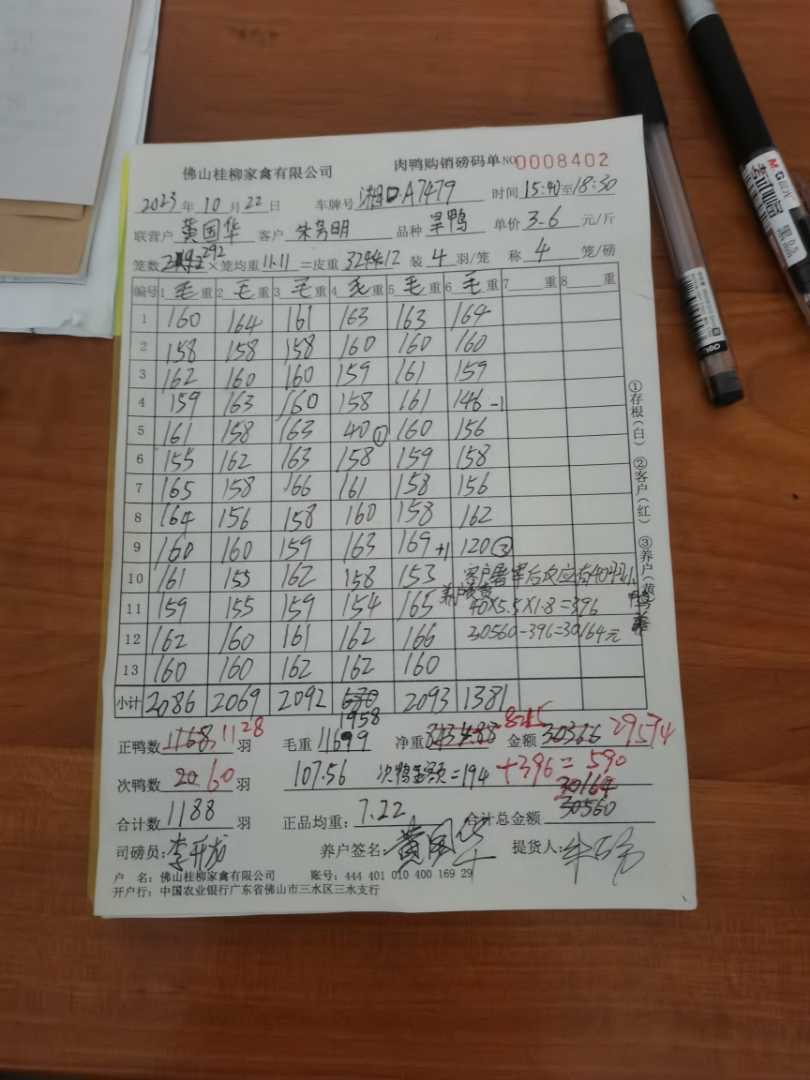 佛山桂柳家禽有限公司 肉鸭购销磅码单 NO 0008402
2023年10月22日 车牌号 湘D·A7479 时间 15:40至18:30
联营户 黄国华 客户 朱 明 品种 旱鸭 单价 3.6 元/斤
笼数 292 ×笼均重 11.11 =皮重 3244.12 装 4 羽/笼 称 4 笼/磅
编号 1 毛 重 2 毛 重 3 毛 重 4 毛 重 5 毛 重 6 毛 重 7 重 8 重
1 160 164 161 163 163 164
2 158 158 158 160 160 160
3 162 160 160 159 161 159
4 159 163 160 158 161 146 -1
5 161 158 163 40① 160 156
6 155 162 163 158 159 158
7 165 158 166 161 158 156
8 164 156 158 160 158 162
9 160 160 159 163 169 +1 120③
10 161 155 162 158 153 客户 后 应有40
11 159 155 159 154 165 40×5.5×1.8=396
12 162 160 161 162 166 30560-396=30164元
13 160 160 162 162 160
小计 2086 2069 2092 1958 2093 1381
①存根(白) ②客户(红) ③养户
正鸭数 1168 1128 羽 毛重 11699 净重 8215 金额 30366 29574
次鸭数 20 60 羽 107.56 次鸭金额=194 +396=590
30164
合计数 1188 羽 正品均重: 7.22 合计总金额 30560
司磅员: 李开龙 养户签名: 黄国华 提货人:
户 名: 佛山桂柳家禽有限公司 账号: 444 401 010 400 169 29
开户行: 中国农业银行广东省佛山市三水区三水支行
M&G
考试必备